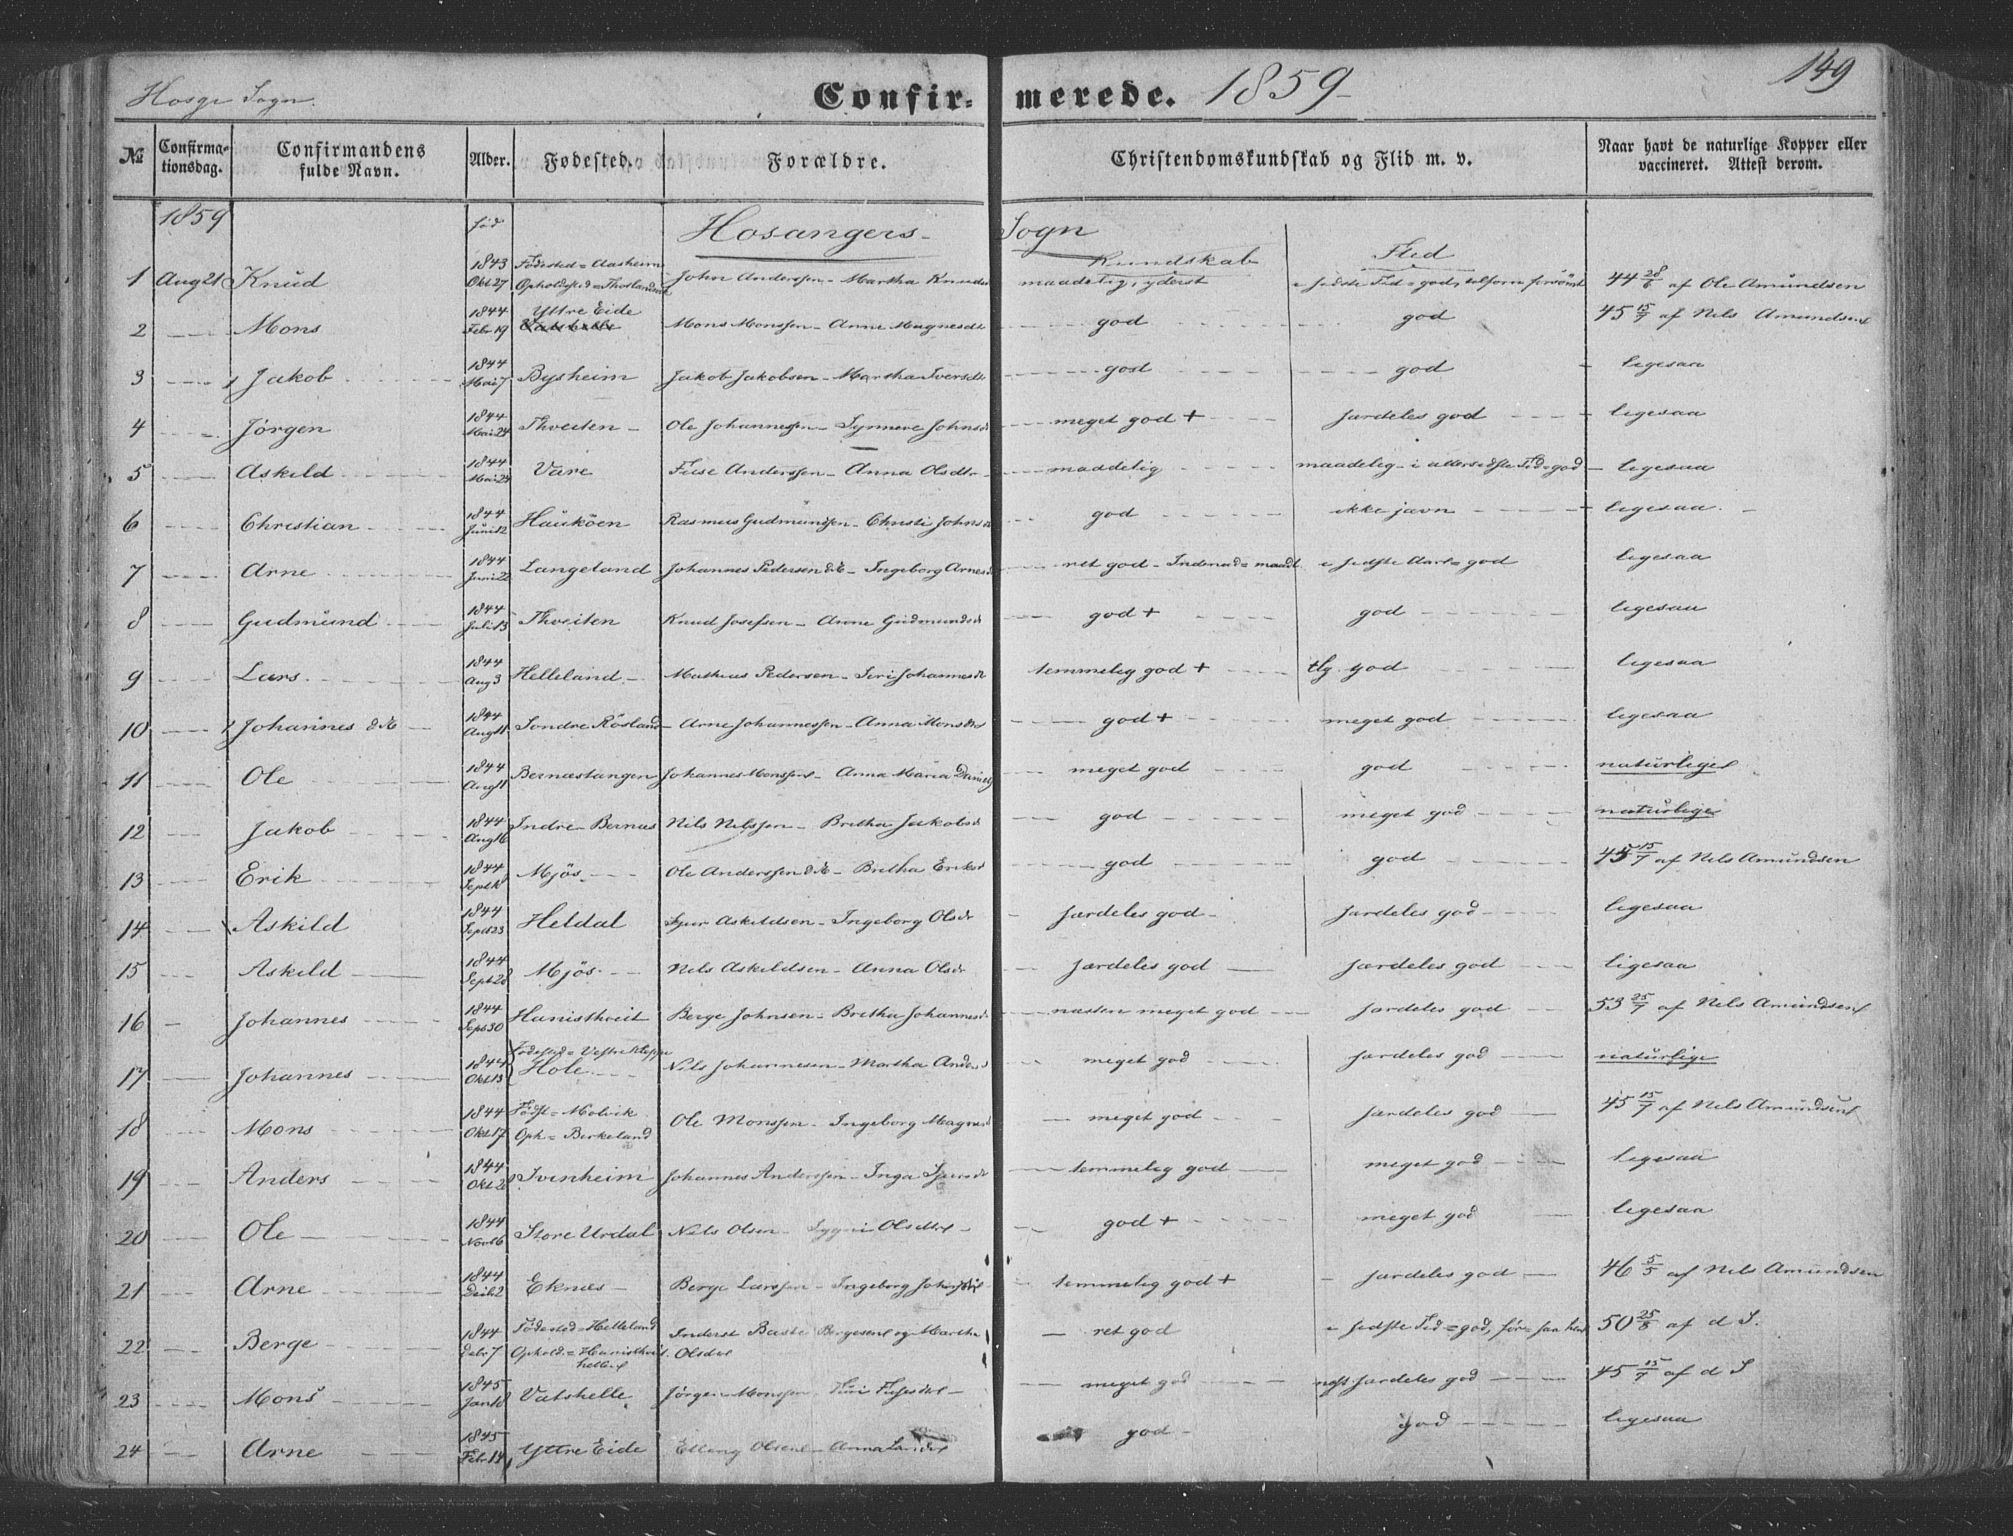 Hosgr Sogn.
Confir- merede. 1859
149
No
Confirmationsdag.
Confirmandens fulde Navn.
Alder.
Fødested.
Forældre.
Christendomskundskab og Flid m. v.
Naar havt de naturlige Kopper eller vaccineret. Attest derom.
1859 fød Hosangers- Sogn
Kundskab Flid
1 Aug 21 Knud 1843 Okt 27 Fødested = Aasheim John Anderssen - Martha Knudsd maadelig, yderst 44 28/6 af Ole Amundsen
2 Mons 1844 Febr 19 Yttre Eide Mons Monssen - Anne Magnesdt god god 45 15/7 af Nels Amundsen
3 Jakob 1844 Mai 7 Bysheim Jakob Jakobsen - Martha Iversdt god god ligesaa
4 Jörgen 1844 Mai 24 Thveiten Ole Johannessen - Synneve Johnsd meget god + særdeles god ligesaa
5 Askild 1844 Mai 24 Vare Fuse Anderssen - Anna Olsdtr maadelig maadelig - i allersidste Tid = god ligesaa
6 Christian 1844 Juni 12 Hauköen Rasmus Gudmundsen - Christi Johnsd god ikke jævn ligesaa
7 Arne 1844 Juni 22 Langeland Johannes Pedersen d.Æ - Ingeborg Arnesd ret god - Indenad = maadl i sidste Aar = god ligesaa
8 Gudmund 1844 Juli 13 Thveiten Knud Josefsen - Anne Gudmundsd god + god ligesaa
9 Lars 1844 Aug 3 Helleland Mathias Pedersen - Siri Johannesd temmelig god + tlg. god ligesaa
10 Johannes d.Æ 1844 Aug 11 Söndre Rösland Arne Johannessen - Anna Monsdt god + meget god ligesaa
11 Ole 1844 Aug 11 Bernæstangen Johannes Monssen - Anna Maria meget god god naturlige
12 Jakob 1844 Aug 16 Indre Bernæs Nils Nilssen - Bretha Jakobsd god meget god naturlige
13 Erik 1844 Sept 18 Mjös Ole Anderssen d.Æ - Bretha Eriksd god god 45 15/7 af Nels Amundsen
14 Askild 1844 Sept 23 Heldal Sjur Askildsen - Ingeborg Olsdr særdeles god særdeles god ligesaa
15 Askild 1844 Sept 28 Mjös Nels Askildsen - Anna Olsdr særdeles god særdeles god ligesaa
16 Johannes 1844 Sept 30 Hanisthveit Berge Johnsen - Bretha Johannesd næsten meget god særdeles god 53 25/7 af Nels Amundsen
17 Johannes 1844 Okt 13 Fødested = Vestre Kleppe Hole Nils Johannesen - Martha Andersd meget god særdeles god naturlige
18 Mons 1844 Okt 17 Födst = Molvik Oph = Birkeland Ole Monssen - Ingeborg Magnesd meget god særdeles god 45 15/7 af Nels Amundsen
19 Anders 1844 Okt 28 Ivenheim Johannes Anderssen - Inga Sjursdt temmelig god meget god ligesaa
20 Ole 1844 Novb 6 Store Urdal Nils Olsen - Olsdtr god + meget god ligesaa
21 Arne 1844 Decb 2 Eknæs Berge Larssen - Ingeborg Johnsdt temmelig god + særdeles god 46 5/5 af Nels Amundsen
22 Berge 1844 Febr 7 Födested = Helleland Ophold = Hanisthveit Inderst Baste Bergesen og Martha Olsdtr ret god i sidste Tid = god, før = saa 50 25/8 af d S.
23 Mons 1845 Jan 18 Vatshelle Jörgen Monssen meget god særdeles god 45 15/7 af d S
24 Arne 1845 Febr 14 Yttre Eide Elling Olsen - Anna god god ligesaa